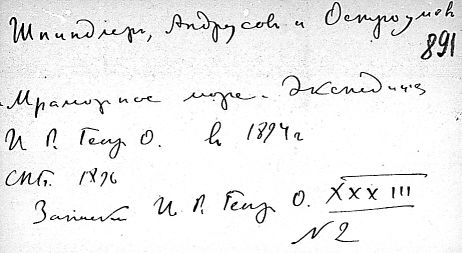 Шпиндлер, Андрусов и Остроумов
891
Мраморное море. Экспедиция
И. Р. Геогр. О. в 1894 г
СПб. 1896
Записки И. Р. Геогр. О. XXXIII
N 2